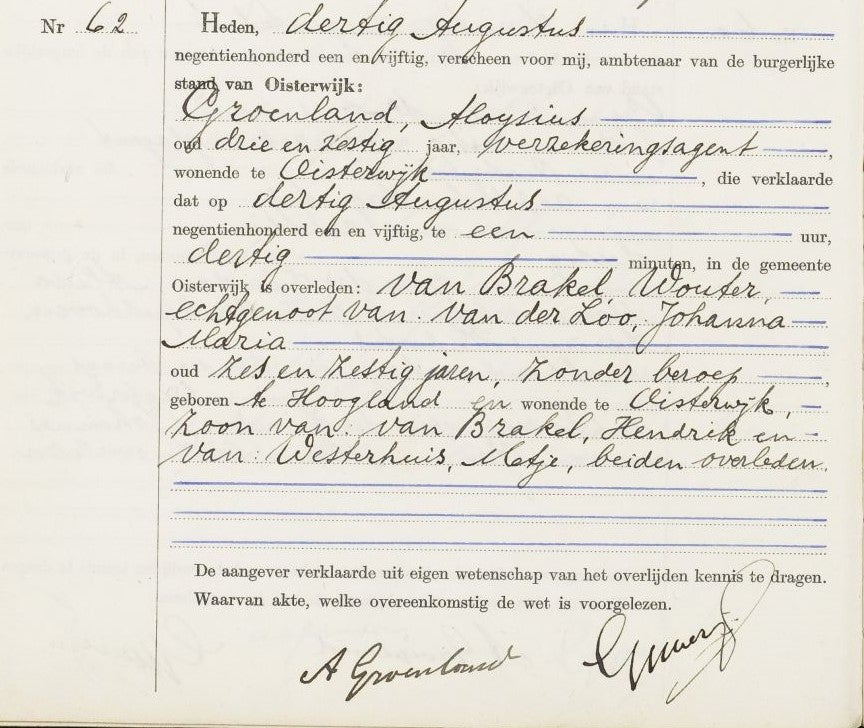 Nr 62 Heden, dertig Augustus
negentienhonderd een en vijftig, verscheen voor mij, ambtenaar van de burgerlijke
stand van Oisterwijk:
Groenland, Aloysius
oud drie en zestig jaar, verzekeringsagent,
wonende te Oisterwijk, die verklaarde
dat op dertig Augustus
negentienhonderd een en vijftig, te een uur,
dertig minuten, in de gemeente
Oisterwijk is overleden: van Brakel, Wouter,
echtgenoot van: van der Loo, Johanna
Maria
oud zes en zestig jaren, zonder beroep,
geboren te Hoogland en wonende te Oisterwijk,
zoon van: van Brakel, Hendrik en
van: Westerhuis, Metje, beiden overleden.
De aangever verklaarde uit eigen wetenschap van het overlijden kennis te dragen.
Waarvan akte, welke overeenkomstig de wet is voorgelezen.
A Groenland